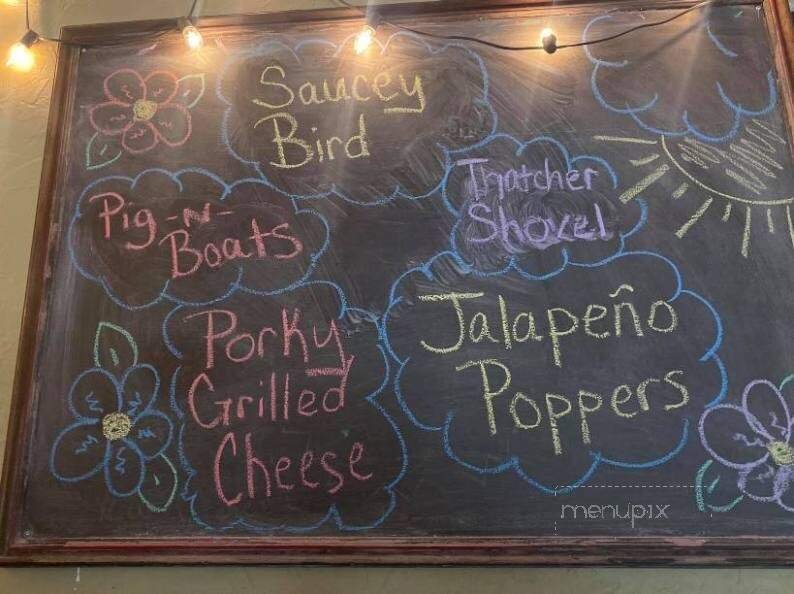 Saucey
Bird
Thatcher
Shovel
Pig-N-
Boats
Jalapeño
Poppers
Porky
Grilled
Cheese
menupix